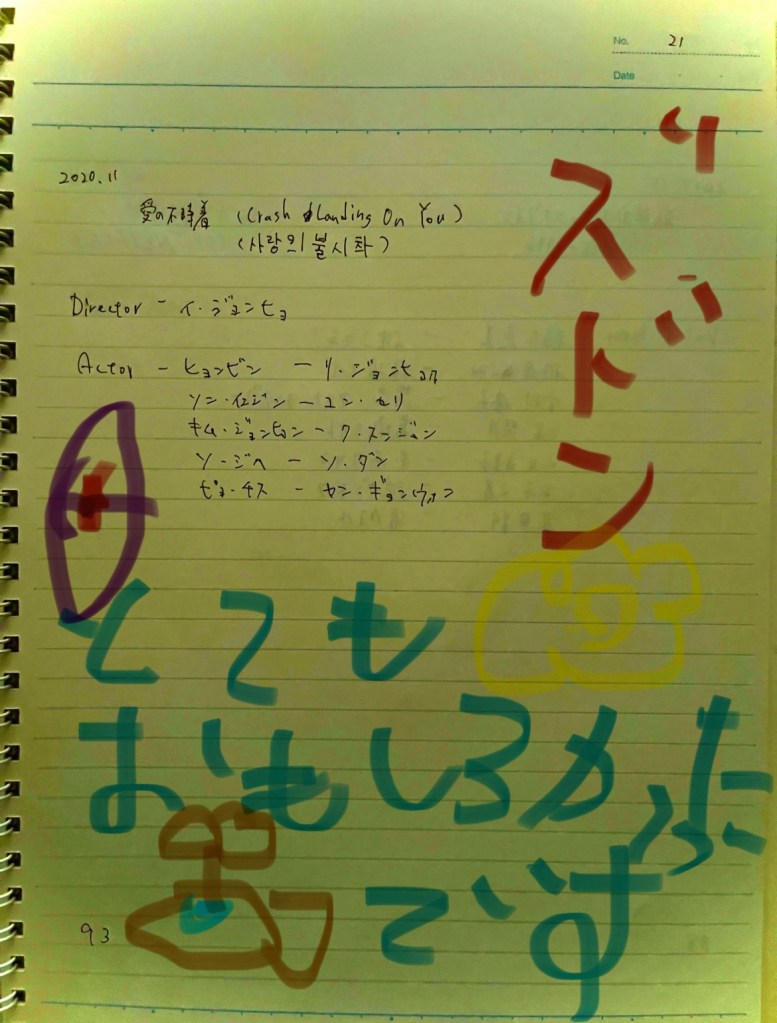 No. 21
Date
2020.11
愛の不時着 (Crash Landing On You)
(사랑의 불시착)
Director - イ・ジョンヒョ
Actor - ヒョンビン - リ・ジョンヒョク
ソン・イェジン - ユン・セリ
キム・ジョンヒョン - ク・スンジュン
ソ・ジヘ - ソ・ダン
- カン・ギョンウォン
ズドン
とても
おもしろかった
です
93